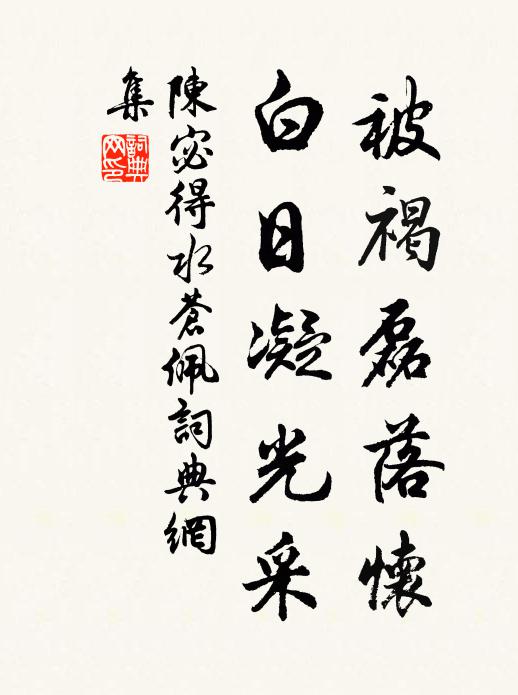 被褐磊落懷
白日凝光采
陳宓得水蒼佩詞典網
集
詞典
网印